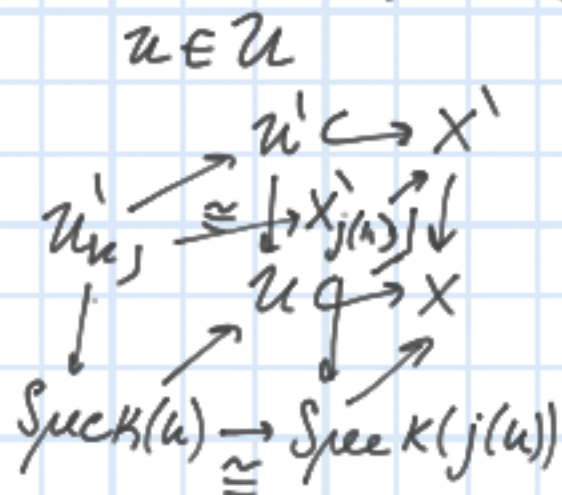 u ∈ U
U' ↪ X'
U'_u ≅ X'_{j(u)}
U ↪ X
Spec K(u) → Spec K(j(u))
≅